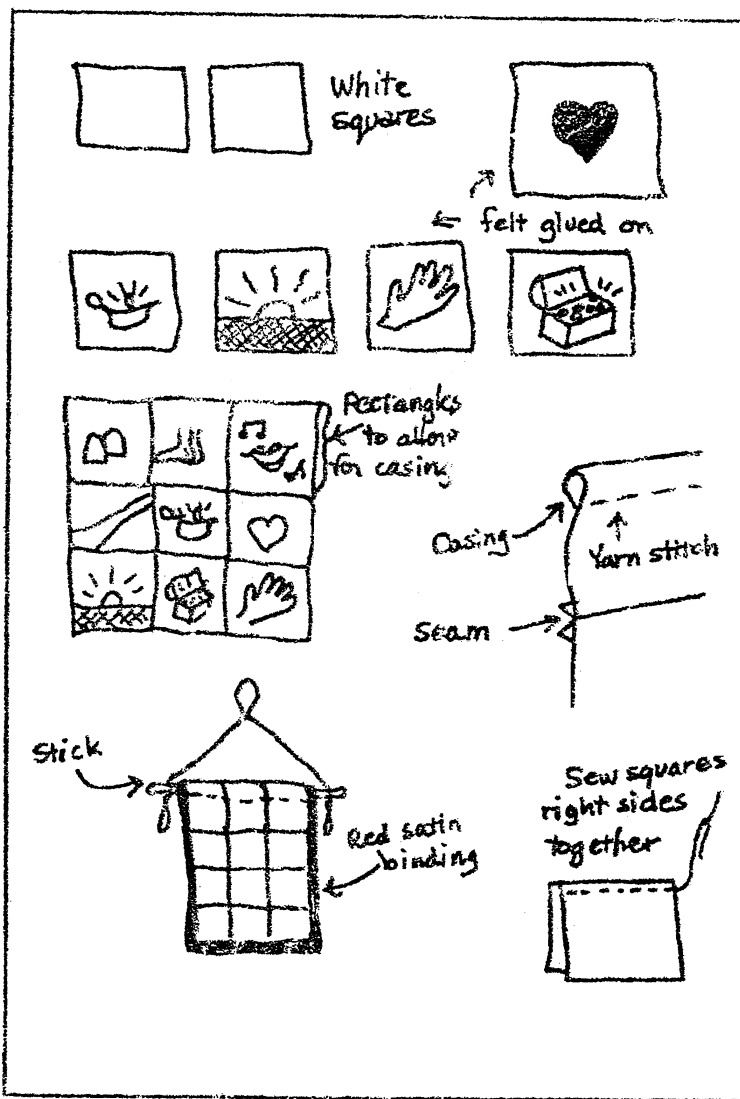 White
squares
felt glued on
Rectangles
to allow
for casing
Casing
Yarn stitch
Seam
Stick
Red satin
binding
Sew squares
right sides
together